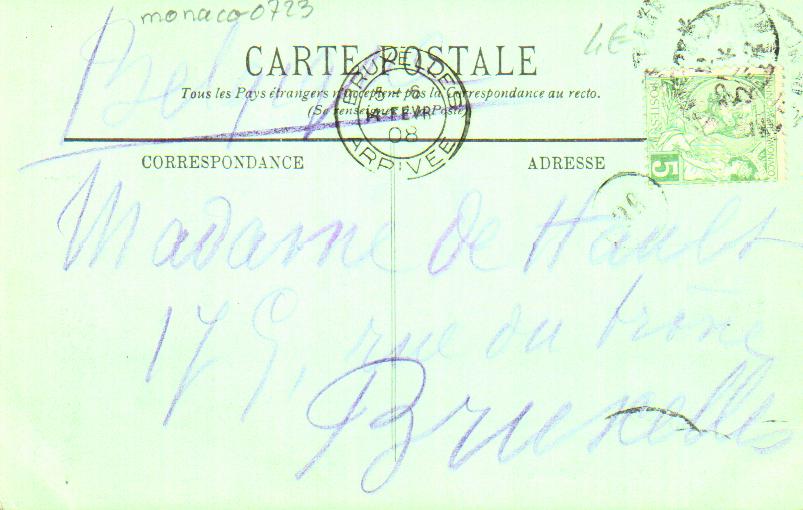 monaco 0723
4E
CARTE POSTALE
Belgique
Tous les Pays étrangers n'acceptent pas la Correspondance au recto.
(Se renseigner à la Poste)
BRUXELLES
14 FEVR
08
ARRIVÉE
5
CORRESPONDANCE
ADRESSE
Madame de Hault
179, rue du trône
Bruxelles